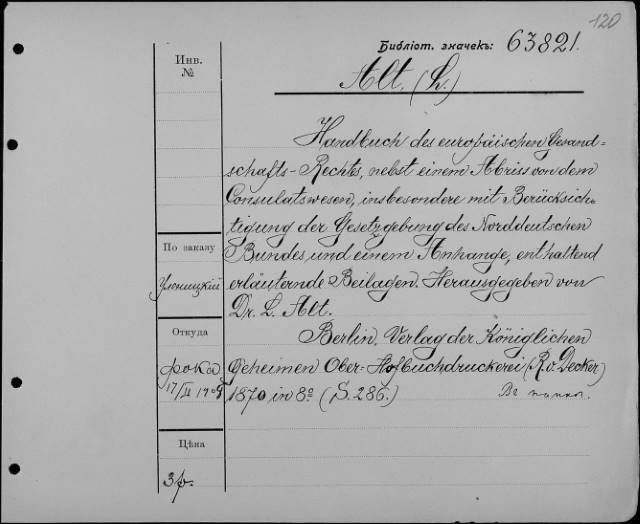 120
Библіот. значекъ: 63821.
Alt. (L.)
Инв.
№
Handbuch des europäischen Gesand=
schafts-Rechts, nebst einem Abriss von dem
Consulatswesen, insbesondere mit Berücksich-
tigung der Gesetzgebung des Norddeutschen
Bundes, und einem Anhange, enthaltend
erläuternde Beilagen. Herausgegeben von
Dr. L. Alt.
Berlin, Verlag der Königlichen
Geheimen Ober=Hofbuchdruckerei (R. v. Decker)
1870 in 8º (S. 286.)
Въ папкѣ.
По заказу
Уляницкій
Откуда
фока
17/II 1909
Цѣна
3р.